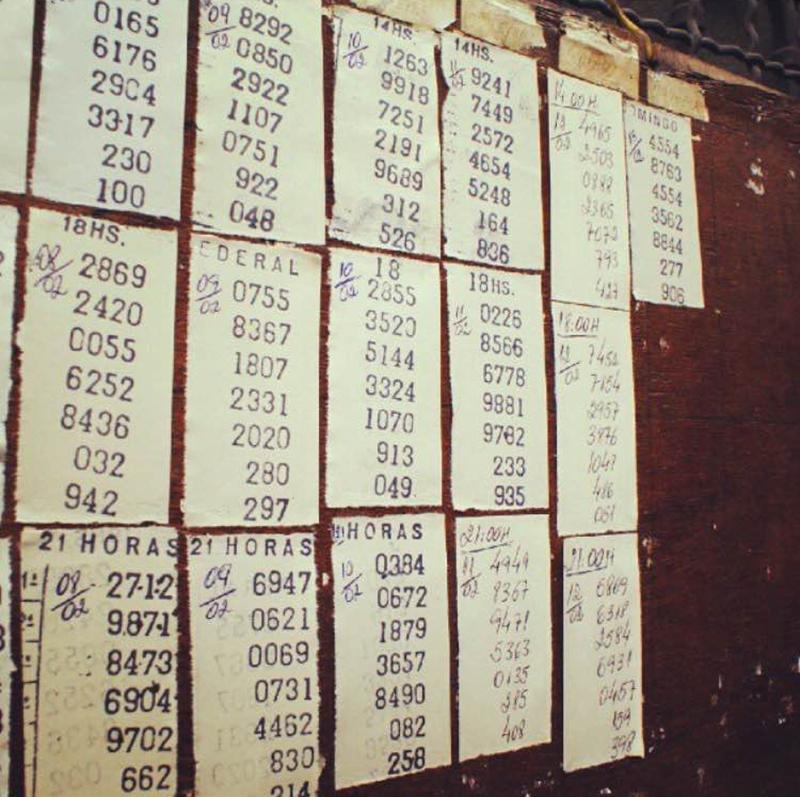 0165
6176
2904
3317
230
100
09/02 8292
0850
2922
1107
0751
922
048
14HS.
10/02 1263
9918
7251
2191
9689
312
526
14HS.
11/02 9241
7449
2572
4654
5248
164
836
14:00H
12/02 4965
2503
0888
2365
7072
793
427
OMINGO
4554
8763
4554
3562
8844
277
906
18HS.
08/02 2869
2420
0055
6252
8436
032
942
EDERAL
09/02 0755
8367
1807
2331
2020
280
297
18
10/02 2855
3520
5144
3324
1070
913
049
18HS.
11/02 0226
8566
6778
9881
9782
233
935
18:00H
12/02 7452
7154
2957
3876
1047
486
21 HORAS
1º 08/02 2712
9871
8473
6904
9702
662
21 HORAS
09/02 6947
0621
0069
0731
4462
830
214
HORAS
10/02 0384
0672
1879
3657
8490
082
258
21:00H
11/02 4949
8367
9471
5363
0135
285
408
21:00H
12/02 6869
6318
2584
6931
0457
159
398